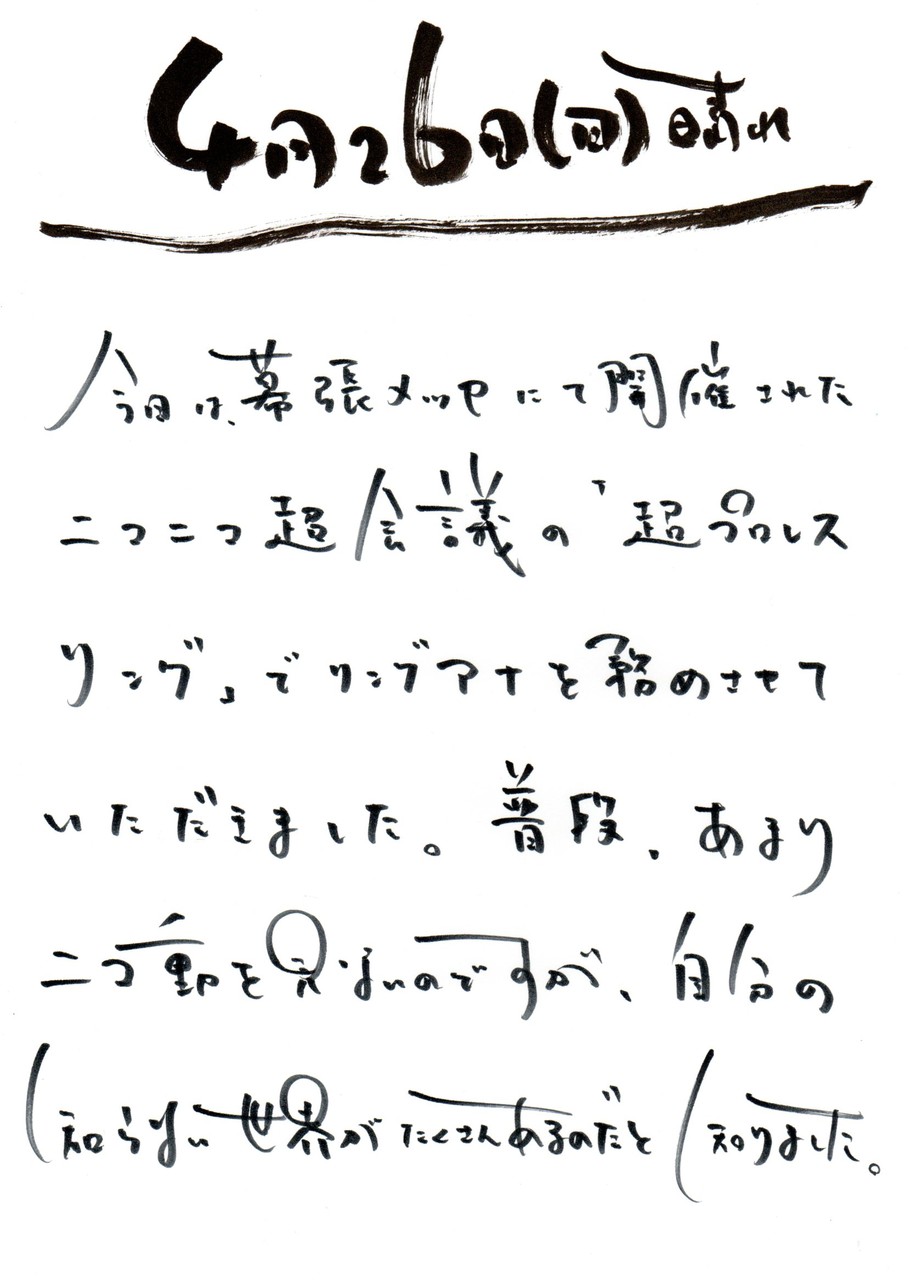 4月26日(日)晴れ
今日は、幕張メッセにて開催された
ニコニコ超会議の「超プロレス
リング」でリングアナを務めさせて
いただきました。普段、あまり
ニコ動を見ないのですが、自分の
知らない世界がたくさんあるのだと知りました。